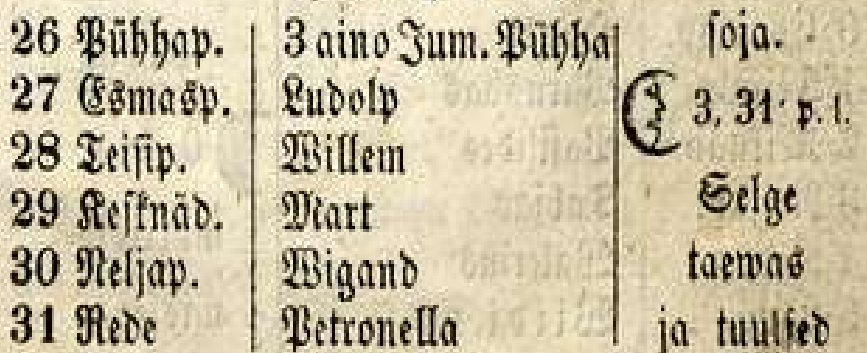 26 Pühhap. 3 aino Jum. Pühha soja.
27 Esmasp. Ludolp 3, 31 p. l.
28 Teisip. Willem
29 Kesknäd. Mart Selge
30 Neljap. Wigand taewas
31 Rede Petronella ja tuulsed